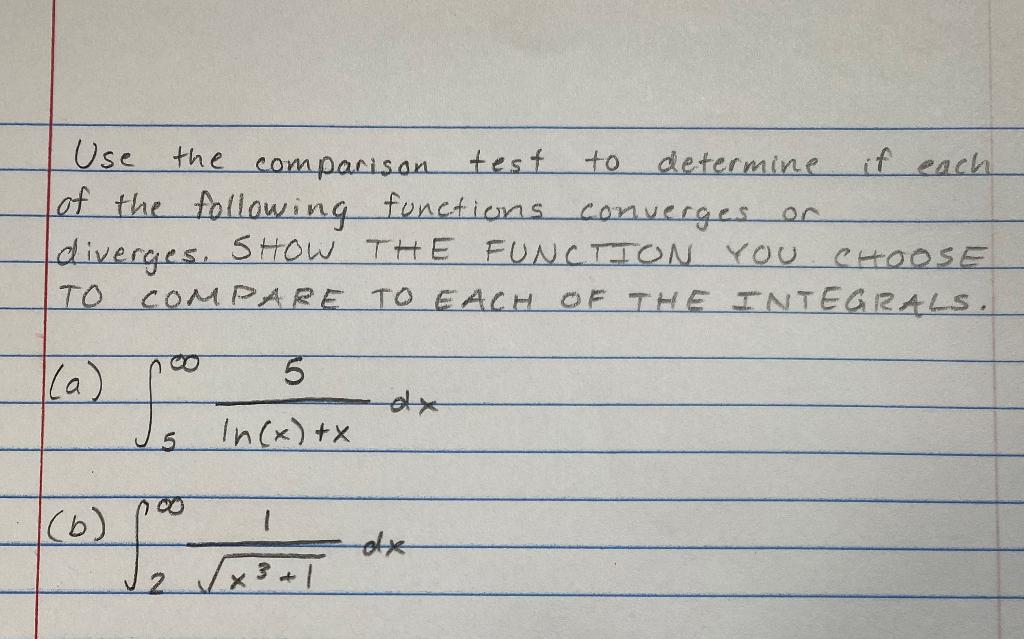 Use the comparison test to determine if each
of the following functions converges or
diverges. SHOW THE FUNCTION YOU CHOOSE
TO COMPARE TO EACH OF THE INTEGRALS.
(a) ∫₅^∞ 5/(ln(x)+x) dx
(b) ∫₂^∞ 1/√(x³+1) dx